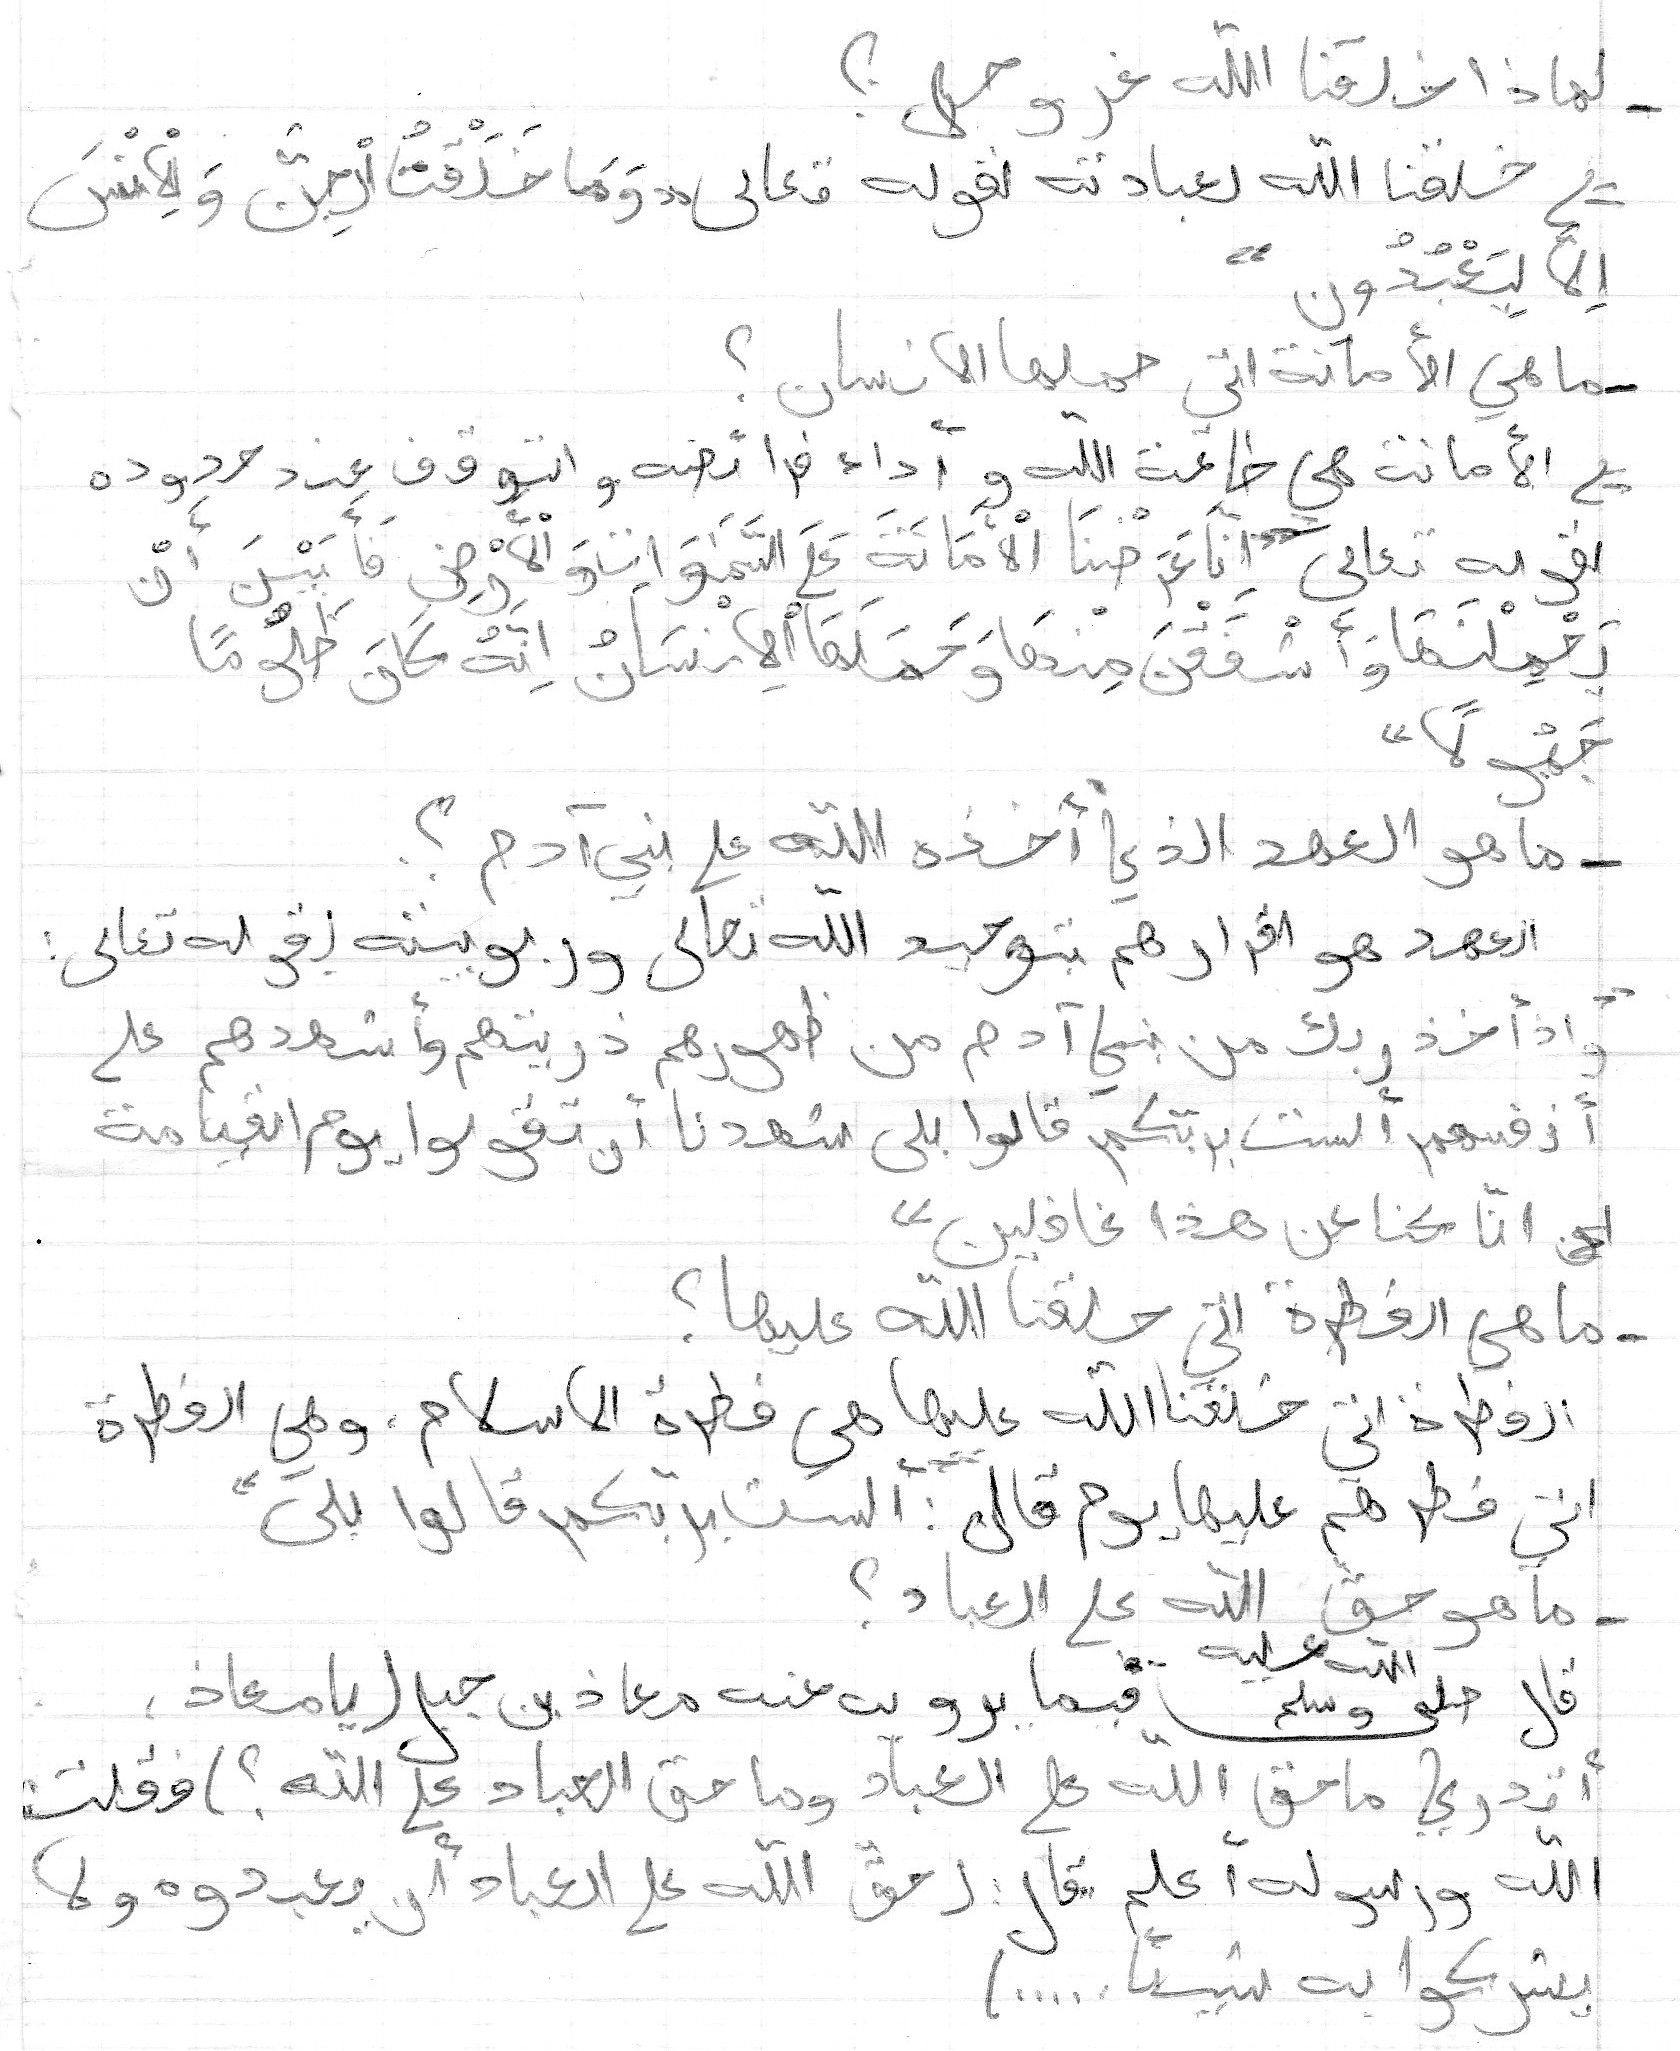 - لماذا خلقنا الله عز وجل ؟
ج خلقنا الله لعبادته لقوله تعالى "وَمَا خَلَقْتُ الْجِنَّ وَ لْاِنْسَ
اِلاَّ لِيَعْبُدُون "
- ما هي الأمانة التي حملها الانسان ؟
ج الأمانة هي طاعة الله و أداء فرائضه و التوقف عند حدوده
لقوله تعالى "اِنَّا عَرَضْنَا الْأَمَانَةَ عَلَى السَّمَوَاتِ وَ الْأَرْضِ فَأَبَيْنَ أَنْ
يَحْمِلْنَهَا وَ أَشْفَقْنَ مِنْهَا وَ حَمَلَهَا الْاِنْسَانُ اِنَّهُ كَانَ ظَلُومًا
جَهُولًا "
- ما هو العهد الذي أخذه الله على بني آدم ؟
العهد هو اقرارهم بتوحيد الله تعالى وربوبيته لقوله تعالى :
"و اذ أخذ ربك من بني آدم من ظهورهم ذريتهم وأشهدهم على
أنفسهم ألست بربّكم قالوا بلى شهدنا أن تقولوا يوم القيامة
انّا كنا عن هذا غافلين "
- ما هي الفطرة التي خلقنا الله عليها ؟
الفطرة التي خلقنا الله عليها هي فطرة الاسلام ، وهي الفطرة
التي فطرهم عليها يوم قال : "ألست بربّكم قالوا بلى "
- ما هو حق الله على العباد ؟
قال صلى الله عليه وسلم فيما يرويه عنه معاذ بن جبل ( يا معاذ ،
أتدري ما حق الله على العباد وما حق العباد على الله ؟ ) فقلت :
الله ورسوله أعلم قال : ( حقّ الله على العباد أن يعبدوه ولا
يشركوا به شيئا ..... )